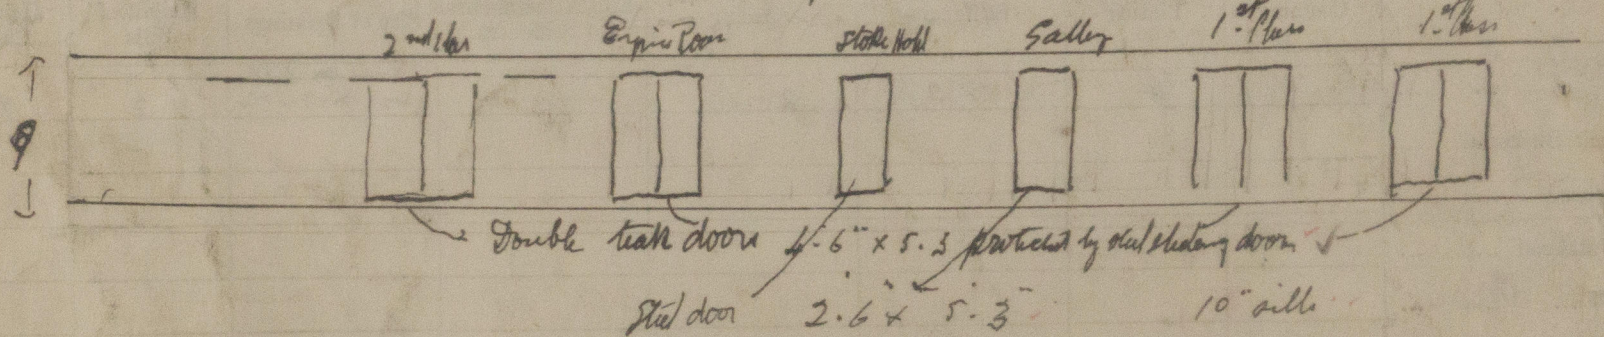 2nd Class Engine Room Stoke Hold Galley 1st Class 1st Class
Double teak doors 4.6" x 5.3 protected by steel sliding doors
Steel door 2.6" x 5.3" 10" sills